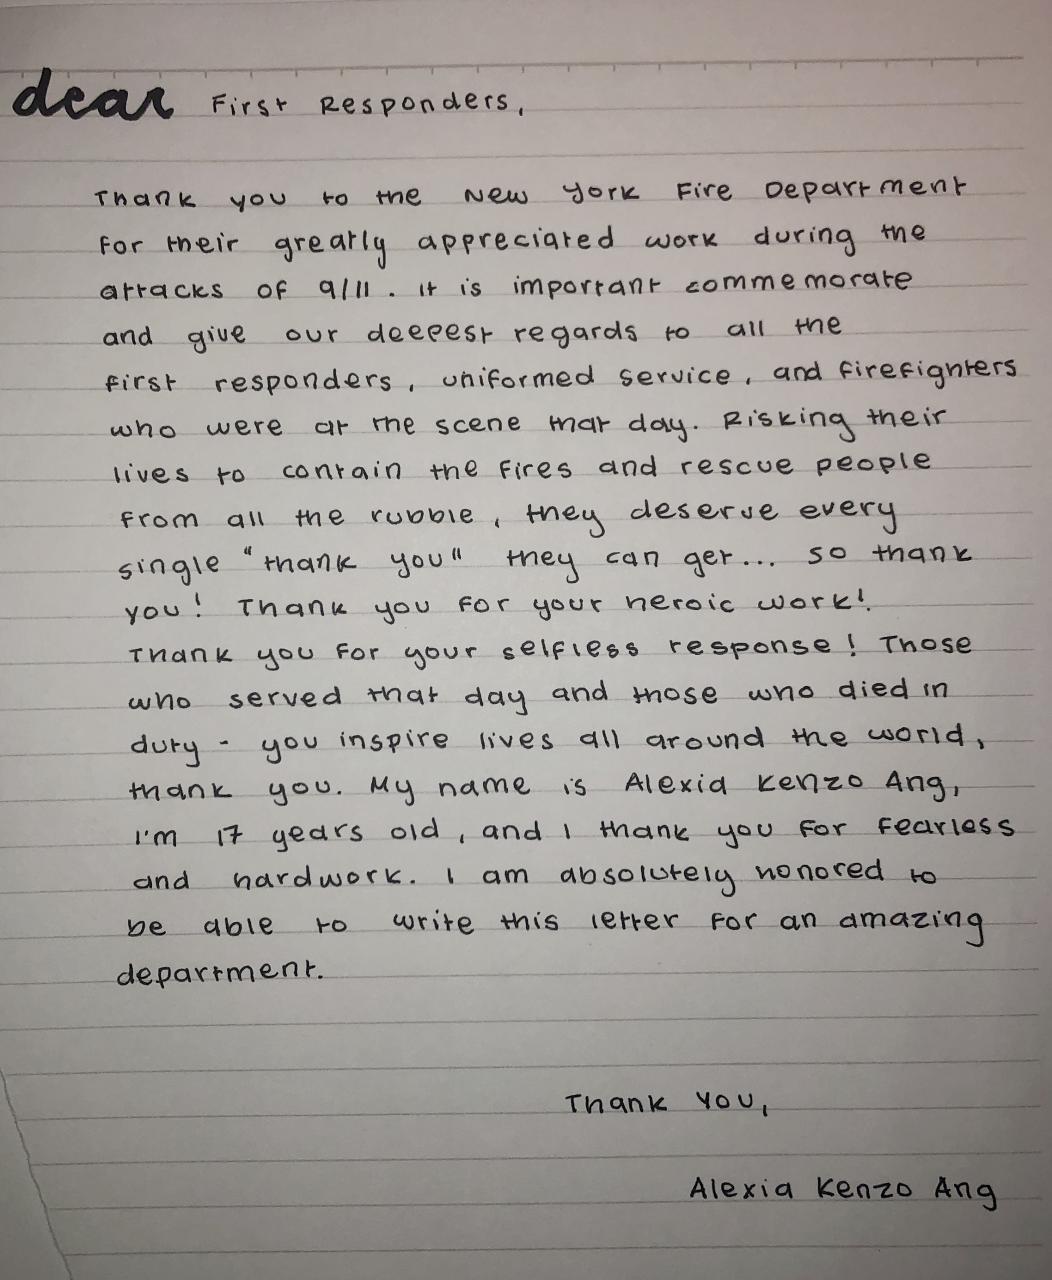 dear First Responders,
Thank you to the New York Fire Department
for their greatly appreciated work during the
attacks of 9/11. It is important commemorate
and give our deepest regards to all the
first responders, uniformed service, and firefighters
who were at the scene that day. Risking their
lives to contain the fires and rescue people
from all the rubble, they deserve every
single "thank you" they can get... so thank
you! Thank you for your heroic work!
Thank you for your selfless response! Those
who served that day and those who died in
duty - you inspire lives all around the world,
thank you. My name is Alexia Kenzo Ang,
I'm 17 years old, and I thank you for fearless
and hardwork. I am absolutely honored to
be able to write this letter for an amazing
department.
Thank you,
Alexia Kenzo Ang